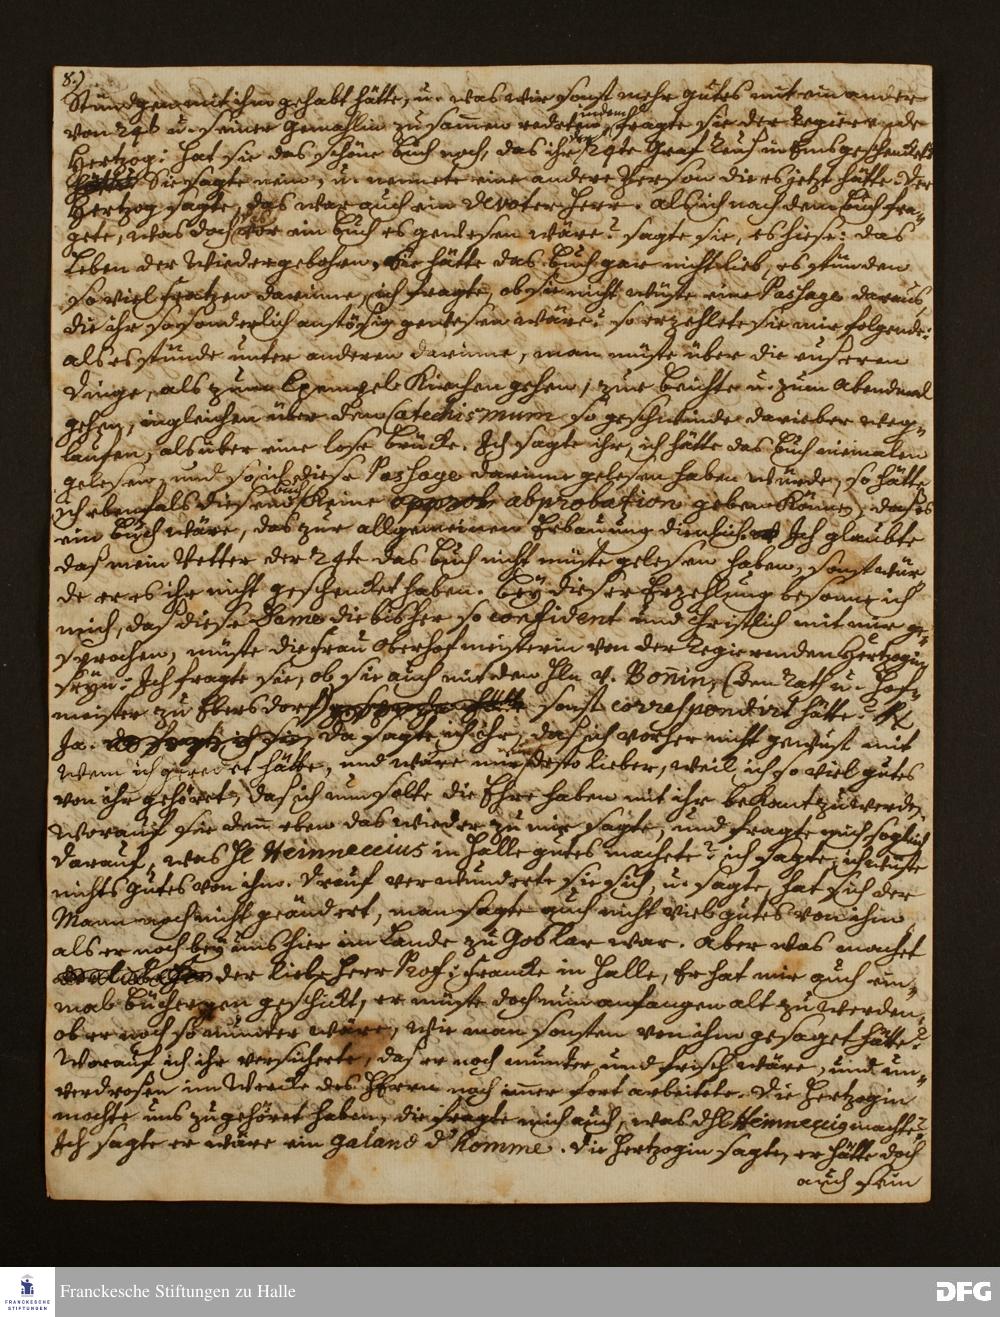 8.)
Stündgen mit ihm gehabt hätte, u. was wir sonst mehr gutes mit ein ander
von 24t. u. seiner Gemahlin zusamen redeten, indem fragte sie der Regierende
Hertzog: hat sie das schöne buch noch, das ihr der 24te Graf Reuß in Ems geschencket
Sie sagte nein, u. nennete eine andere Person die es jetzt hätte. Der
Hertzog sagte, das war auch ein devoter Herr. als ich nach dem buch fra-
gete, was doch vor ein buch es gewesen wäre? sagte sie, es hiese: das
Leben der Wiedergebohrn, Sie hätte das buch gar nicht lieb, es stünden
so viel fratzen darinne, ich fragte, ob sie nicht wüste eine Passage daraus,
die ihr so sonderlich anstößig gewesen wäre? so erzehlete sie mir folgende:
als es stünde unter anderen darinne, man müste über die euseren
Dinge, als zum Exempel Kirchen gehen, zur beichte u. zum Abendmal
gehen, ingleichen über den Catechismum so geschwinde darüber weg-
laufen, als über eine lose brücke. Ich sagte ihr, ich hätte das buch niemalen
gelesen, und so ich diese Passage darinne gelesen haben würde, so hätte
ich ebenfals diesem buch keine approbation geben können, daß es
ein buch wäre, das zur allgemeinen Erbauung dienlich. Ich glaubte
daß mein Vetter der 24te das buch nicht müste gelesen haben, sonst wür
de er es ihr nicht geschenket haben. bey dieser Erzehlung besonne ich
mich, das diese Dame die bisher so confident und christlich mit mir ge-
sprochen, müste die Frau Oberhofmeisterin von der Regierenden Hertzogin
seyn: Ich fragte sie, ob sie auch mit den Hln v. Bonin, (den Rath u. Hof-
meister zu Ebersdorf) sonst correspondirt hätte?
Ja. da sagte ich ihr, daß ich vorher nicht gewust mit
wem ich geredet hätte, und wäre mir desto lieber, weil ich so viel gutes
von ihr gehöret, daß ich nun solte die Ehre haben mit ihr bekant zu werden,
worauf sie denn eben das wieder zu mir sagte, und fragte mich sogleich
darauf, was Hl Heinneccius in Halle gutes machete? ich sagte, ich wüste
nichts gutes von ihm. Drauf verwunderte sie sich, u. sagte, hat sich der
Mann noch nicht geändert, man sagte auch nicht viel gutes von ihm
als er noch bey uns hier im Lande zu Goslar war. Aber was machet
der liebe Herr Prof: Francke in Halle, Er hat mir auch ein-
mal büchergen geschickt, er müste doch nun anfangen alt zu werden,
ob er noch so munter wäre, wie man sonsten von ihm gesaget hätte?
Worauf ich ihr versicherte, daß er noch munter und frisch wäre, und un-
verdrosen im Wercke des Herrn noch imer fort arbeitete. Die Hertzogin
mochte uns zugehöret haben, die fragte mich auch, was d Hl Heinneccig machte?
Ich sagte er wäre ein galand d'homme. Die Hertzogin sagte, er hätte doch
auch sein
Franckesche Stiftungen zu Halle
FRANCKESCHE STIFTUNGEN
DFG